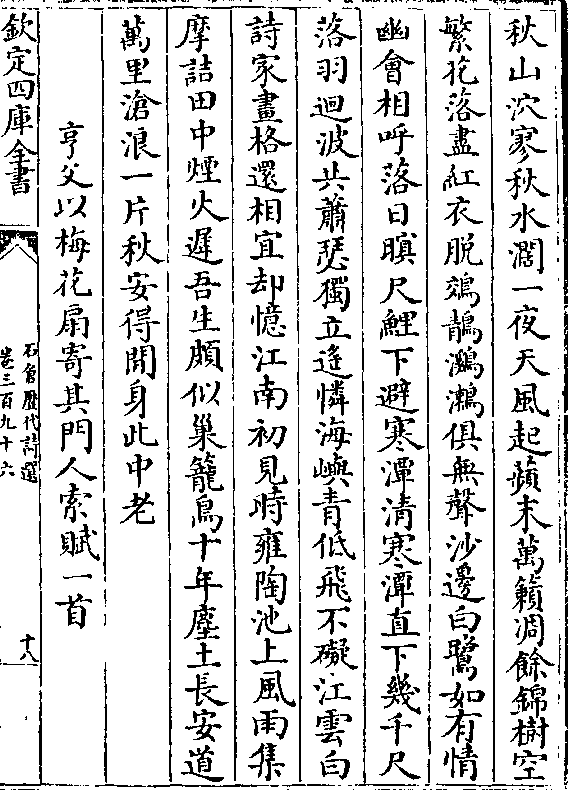 秋山泬寥秋水濶一夜天風起蘋末萬籟凋餘錦樹空
繁花落盡紅衣脱鵁鶄鸂鶒俱無聲沙邊白鷺如有情
幽會相呼落日瞑尺鯉下避寒潭清寒潭直下幾千尺
落羽迴波共蕭瑟獨立遙憐海嶼青低飛不礙江雲白
詩家畫格還相宜却憶江南初見時雍陶池上風雨集
摩詰田中煙火遲吾生頗似巢籠鳥十年塵土長安道
萬里滄浪一片秋安得閒身此中老
亨父以梅花扇寄其門人索賦一首
欽定四庫全書
石倉歷代詩選
卷三百九十六
十八